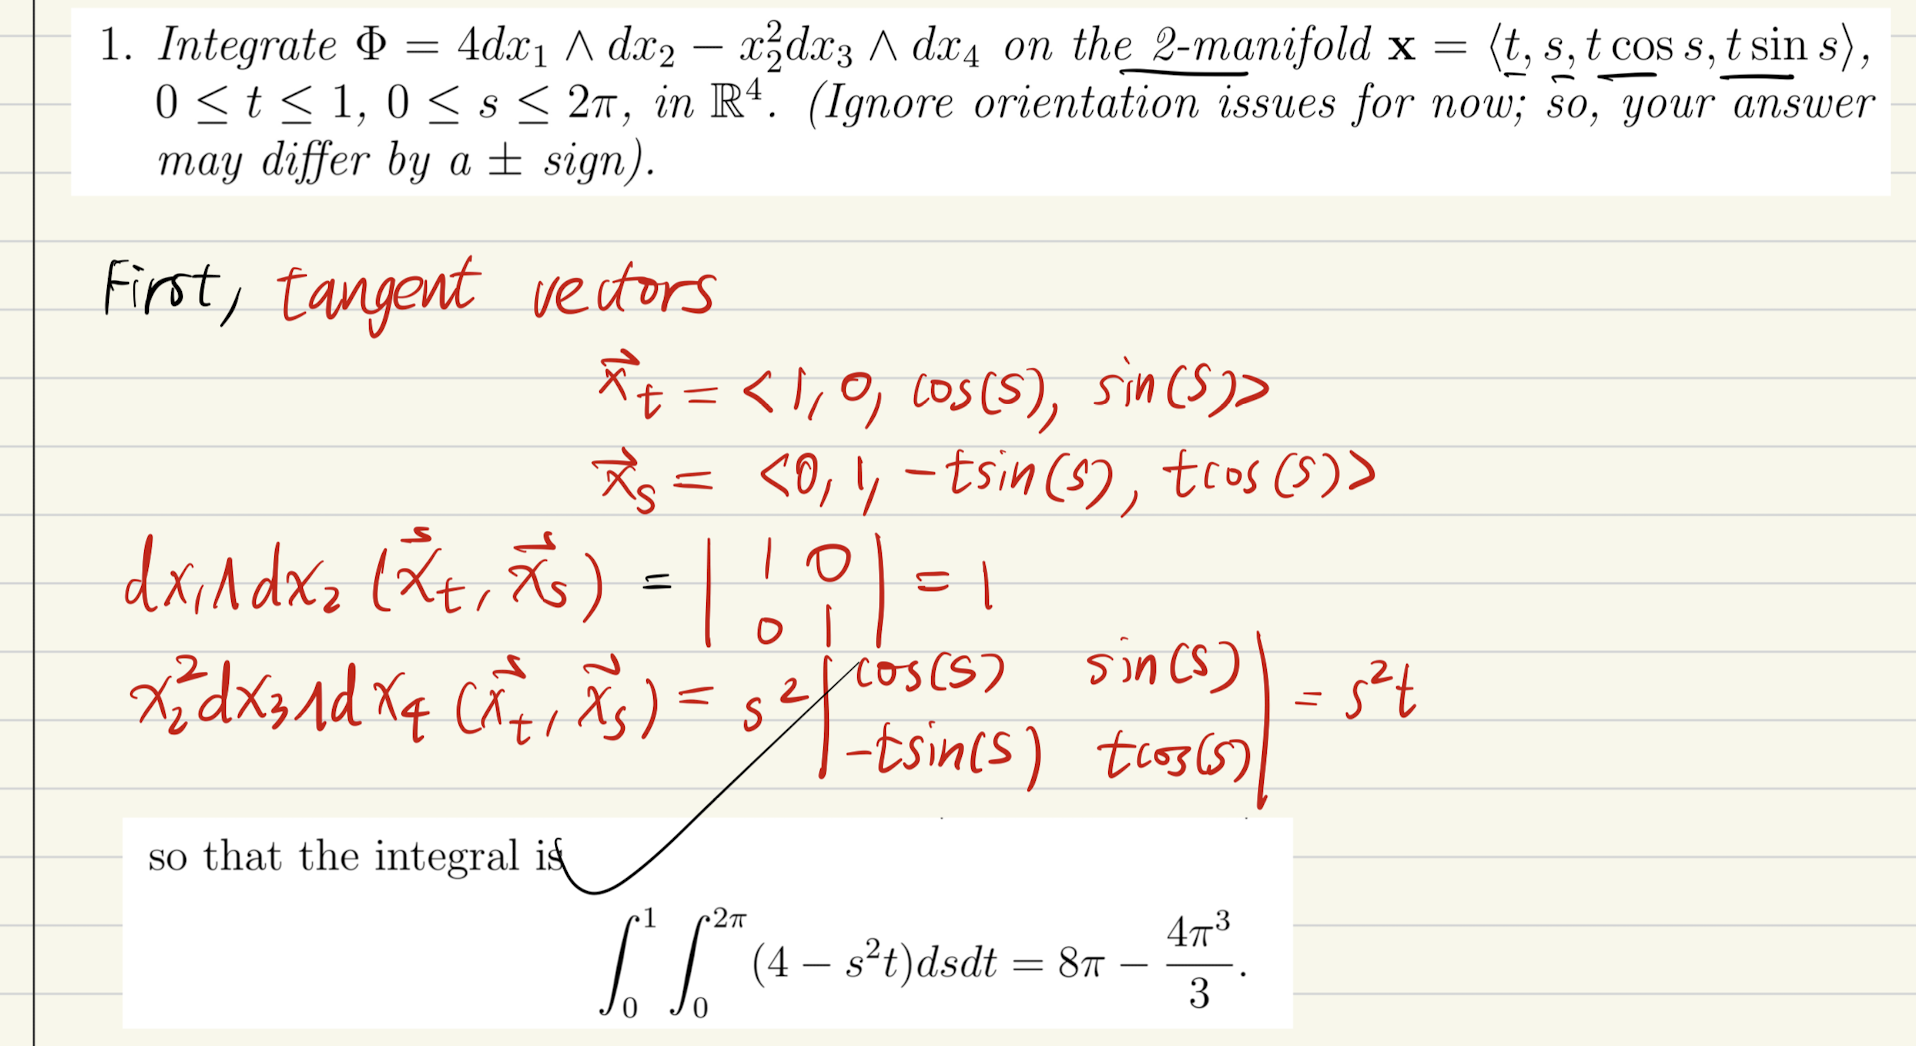 1. Integrate Φ = 4dx₁ ∧ dx₂ − x₂²dx₃ ∧ dx₄ on the 2-manifold x = ⟨t, s, t cos s, t sin s⟩,
0 ≤ t ≤ 1, 0 ≤ s ≤ 2π, in ℝ⁴. (Ignore orientation issues for now; so, your answer
may differ by a ± sign).
First, tangent vectors
x⃗_t = <1, 0, cos(s), sin(s)>
x⃗_s = <0, 1, -tsin(s), tcos(s)>
dx₁∧dx₂ (x⃗_t, x⃗_s) = | 1 0 ; 0 1 | = 1
x₂²dx₃∧dx₄ (x⃗_t, x⃗_s) = s² | cos(s) sin(s) ; -tsin(s) tcos(s) | = s²t
so that the integral is
∫₀¹ ∫₀^{2π} (4 − s²t)dsdt = 8π − 4π³/3.